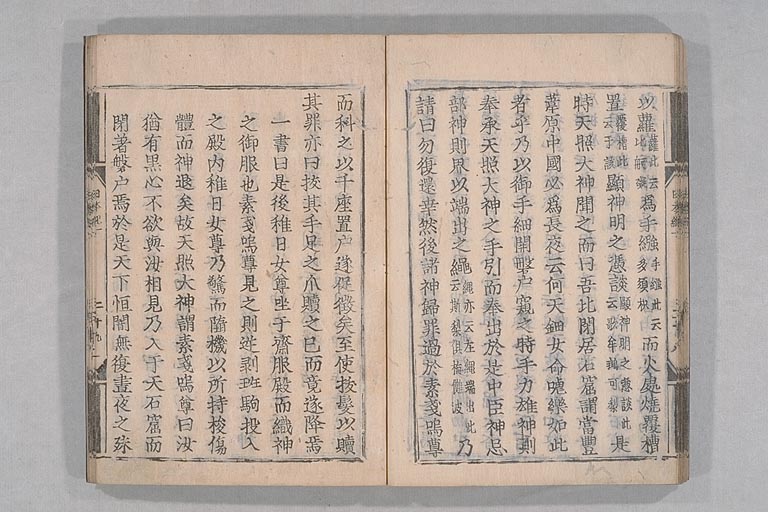 以蘿蘿此云比舸礙爲手繦手繦此云多須枳而火處燒覆槽
置覆槽此云于該顯神明之憑談顯神明之憑談此云歌牟鵝可梨是
時天照大神聞之而曰吾比閉居石窟謂當豐
葦原中國必爲長夜云何天鈿女命㖸樂如此
者乎乃以御手細開磐戸窺之時手力雄神則
奉承天照大神之手引而奉出於是中臣神忌
部神則界以端出之繩繩亦云左繩端出此云斯梨倶梅儺波乃
請曰勿復還幸然後諸神歸罪過於素戔嗚尊
而科之以千座置戸遂促徵矣至使拔髮以贖
其罪亦曰拔其手足之爪贖之已而竟遂降焉
一書曰是後稚日女尊坐于齋服殿而織神
之御服也素戔嗚尊見之則逆剥斑駒投入
之殿内稚日女尊乃驚而墮機以所持梭傷
體而神退矣故天照大神謂素戔嗚尊曰汝
猶有黒心不欲與汝相見乃入于天石窟而
閉著磐戸焉於是天下恒闇無復晝夜之殊